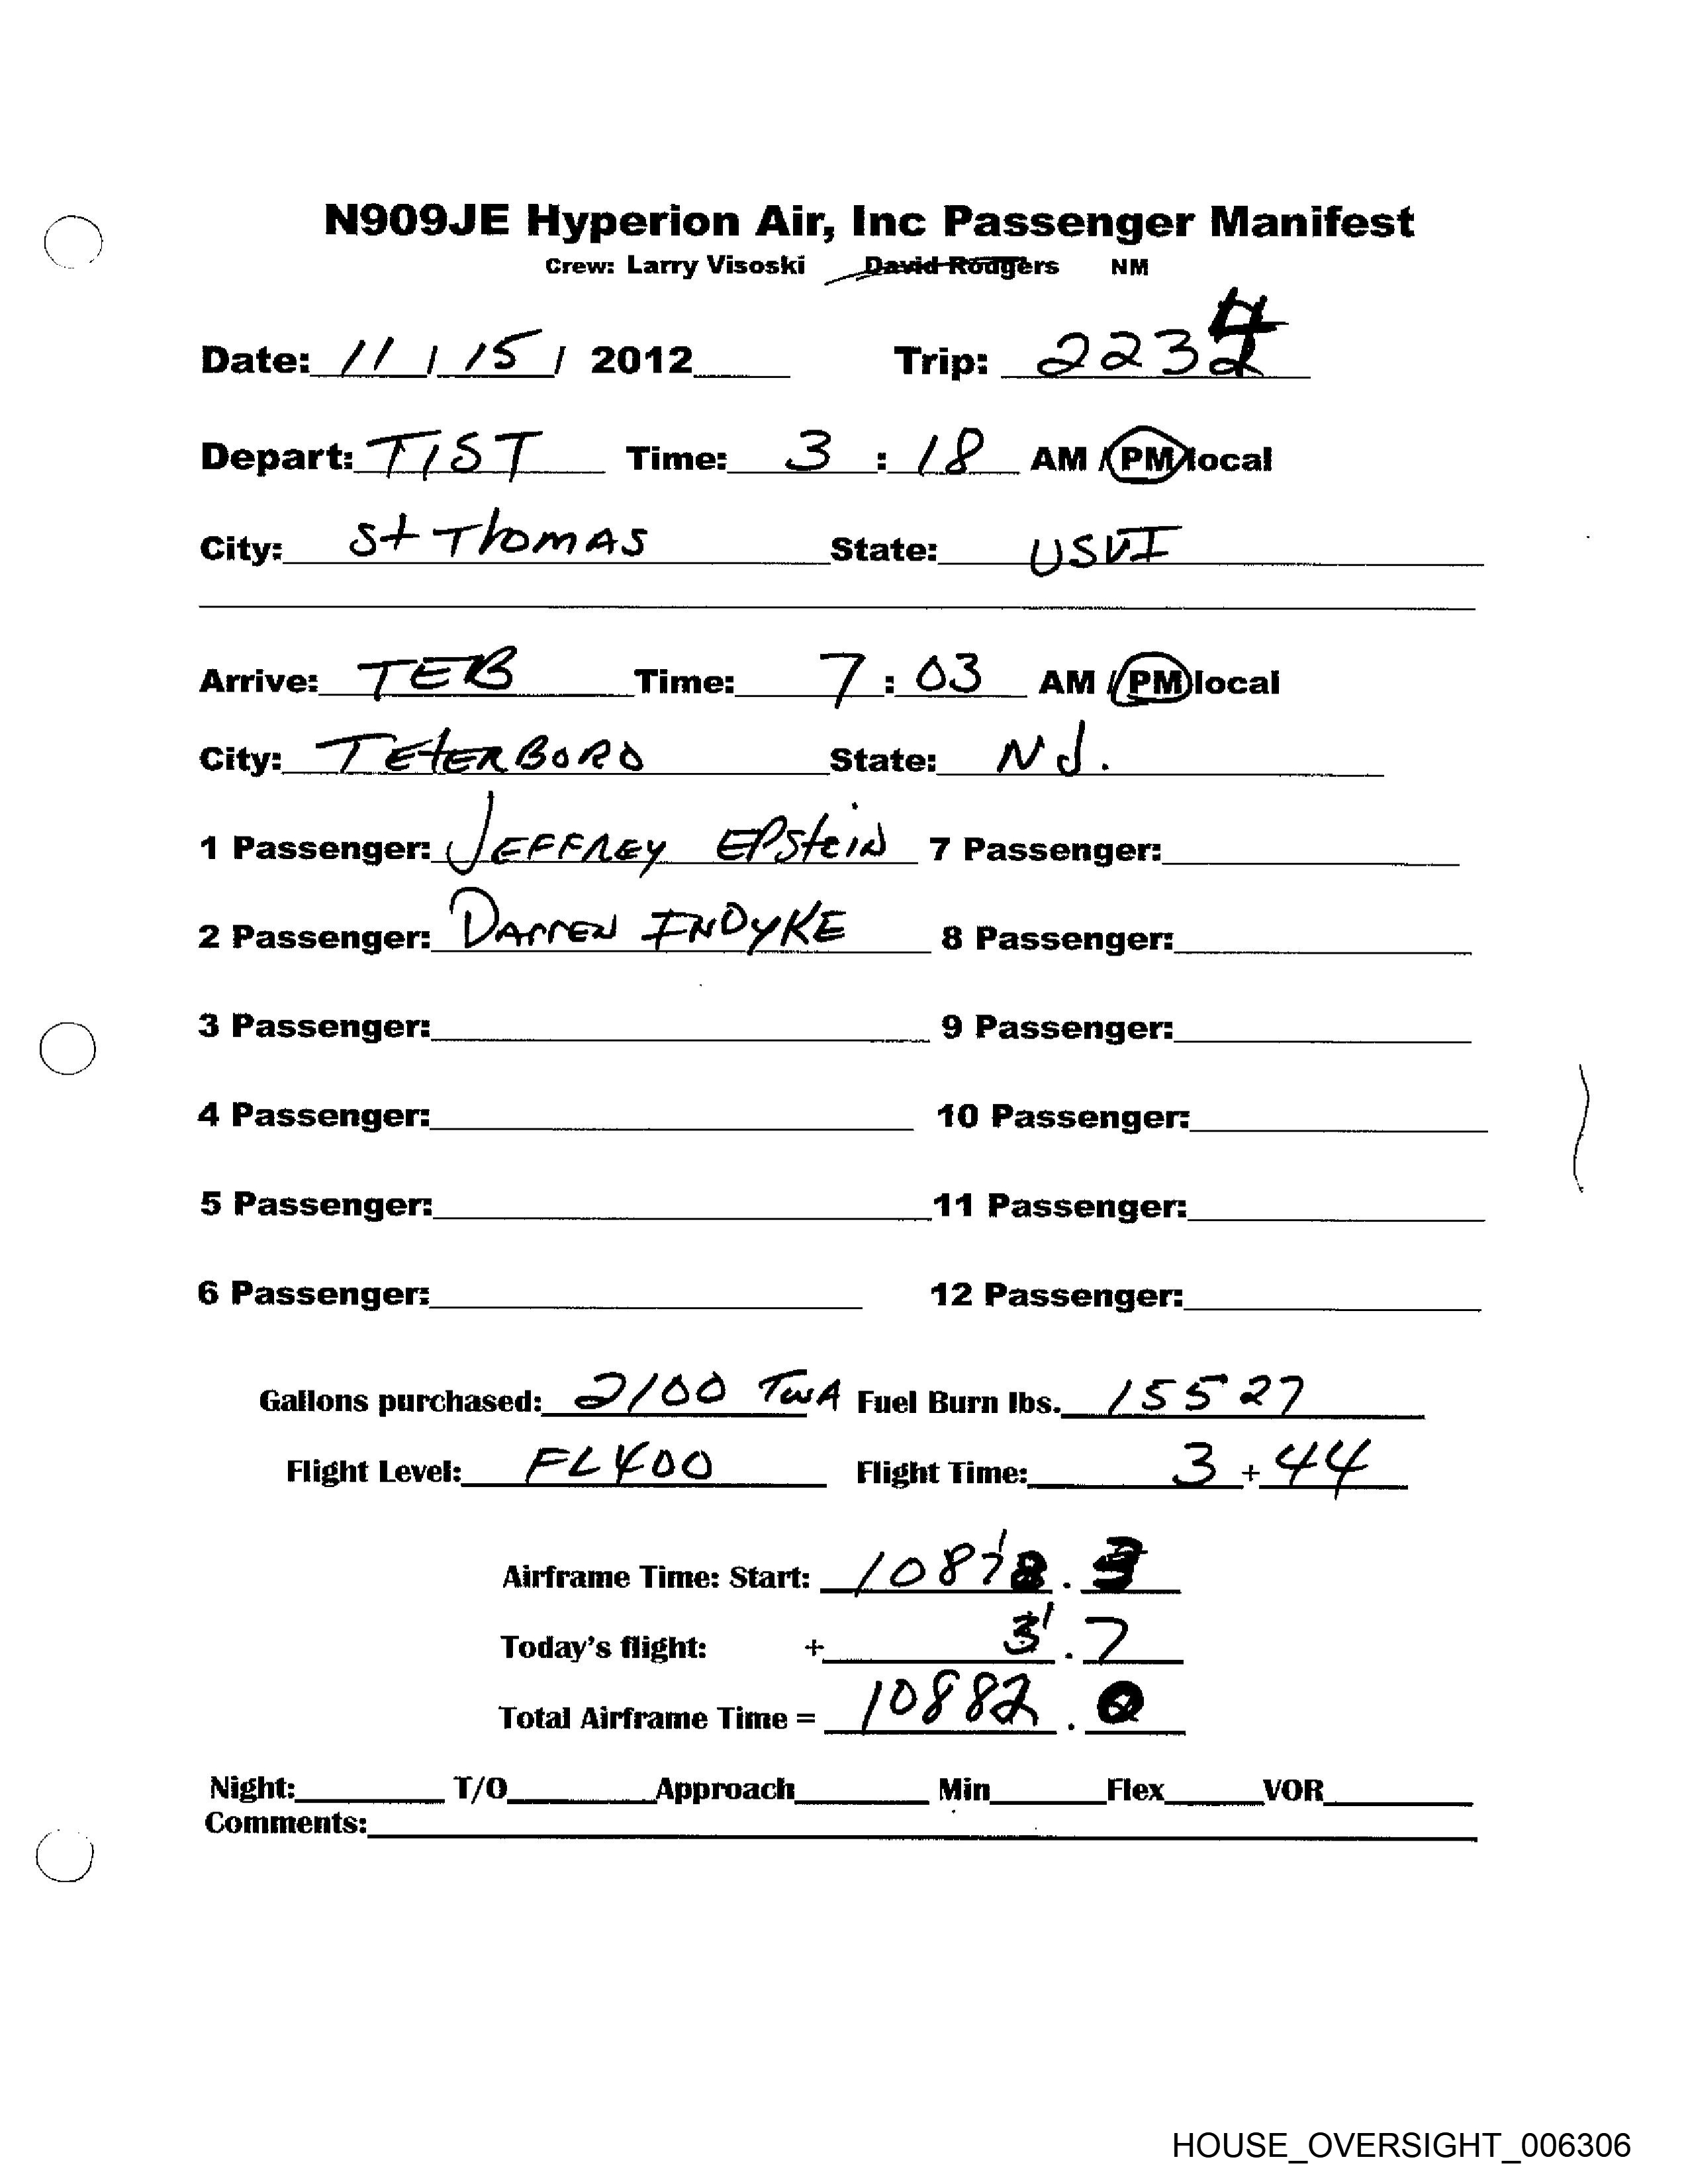 N909JE Hyperion Air, Inc Passenger Manifest
Crew: Larry Visoski David Rodgers NM
Date: 11 / 15 / 2012 Trip: 2234
Depart: TIST Time: 3 : 18 AM / PM local
City: St Thomas State: USVI
Arrive: TEB Time: 7 : 03 AM / PM local
City: TETERBORO State: NJ.
1 Passenger: JEFFREY EPStein 7 Passenger:
2 Passenger: Darren INDYKE 8 Passenger:
3 Passenger: 9 Passenger:
4 Passenger: 10 Passenger:
5 Passenger: 11 Passenger:
6 Passenger: 12 Passenger:
Gallons purchased: 2100 TWA Fuel Burn lbs. 15527
Flight Level: FL400 Flight Time: 3 + 44
Airframe Time: Start: 10878.3
Today's flight: + 3.7
Total Airframe Time = 10882.0
Night: T/O Approach Min Flex VOR
Comments:
HOUSE_OVERSIGHT_006306